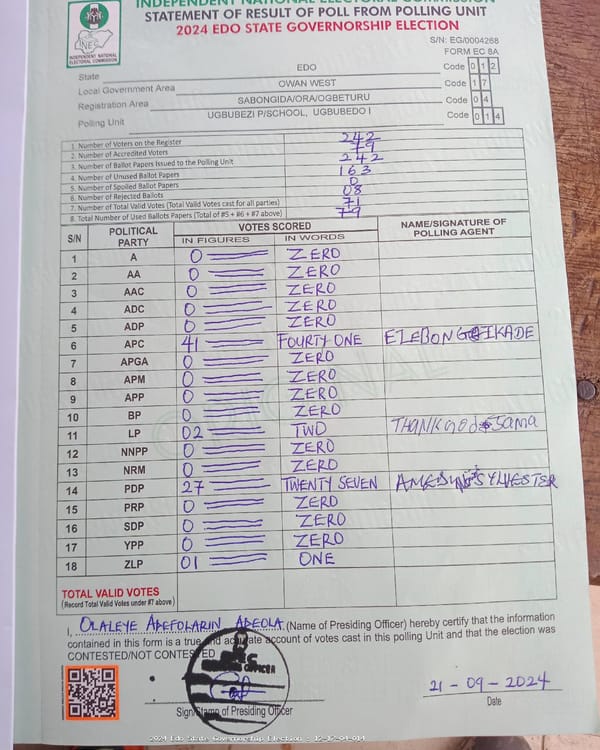 INDEPENDENT NATIONAL ELECTORAL COMMISSION
STATEMENT OF RESULT OF POLL FROM POLLING UNIT
2024 EDO STATE GOVERNORSHIP ELECTION
INEC
INDEPENDENT NATIONAL
ELECTORAL COMMISSION
S/N: EG/0004268
FORM EC 8A
State EDO Code 0 1 2
Local Government Area OWAN WEST Code 1 7
Registration Area SABONGIDA/ORA/OGBETURU Code 0 4
Polling Unit UGBUBEZI P/SCHOOL, UGBUBEDO I Code 0 1 4
1. Number of Voters on the Register 242
2. Number of Accredited Voters 79
3. Number of Ballot Papers Issued to the Polling Unit 242
4. Number of Unused Ballot Papers 163
5. Number of Spoiled Ballot Papers 0
6. Number of Rejected Ballots 08
7. Number of Total Valid Votes (Total Valid Votes cast for all parties) 71
8. Total Number of Used Ballots Papers (Total of #5 + #6 + #7 above) 79
S/N POLITICAL PARTY VOTES SCORED NAME/SIGNATURE OF POLLING AGENT
IN FIGURES IN WORDS
1 A 0 ZERO
2 AA 0 ZERO
3 AAC 0 ZERO
4 ADC 0 ZERO
5 ADP 0 ZERO
6 APC 41 FOURTY ONE
7 APGA 0 ZERO
8 APM 0 ZERO
9 APP 0 ZERO
10 BP 0 ZERO
11 LP 02 TWO THANKGOD Sama
12 NNPP 0 ZERO
13 NRM 0 ZERO
14 PDP 27 TWENTY SEVEN
15 PRP 0 ZERO
16 SDP 0 ZERO
17 YPP 0 ZERO
18 ZLP 01 ONE
TOTAL VALID VOTES
(Record Total Valid Votes under #7 above)
I, OLALEYE ADEFOLARIN ADEOLA (Name of Presiding Officer) hereby certify that the information
contained in this form is a true and accurate account of votes cast in this polling Unit and that the election was
CONTESTED/NOT CONTESTED
Sign/Stamp of Presiding Officer
21-09-2024
Date
2024 Edo State Governorship Election - 12-17-04-014